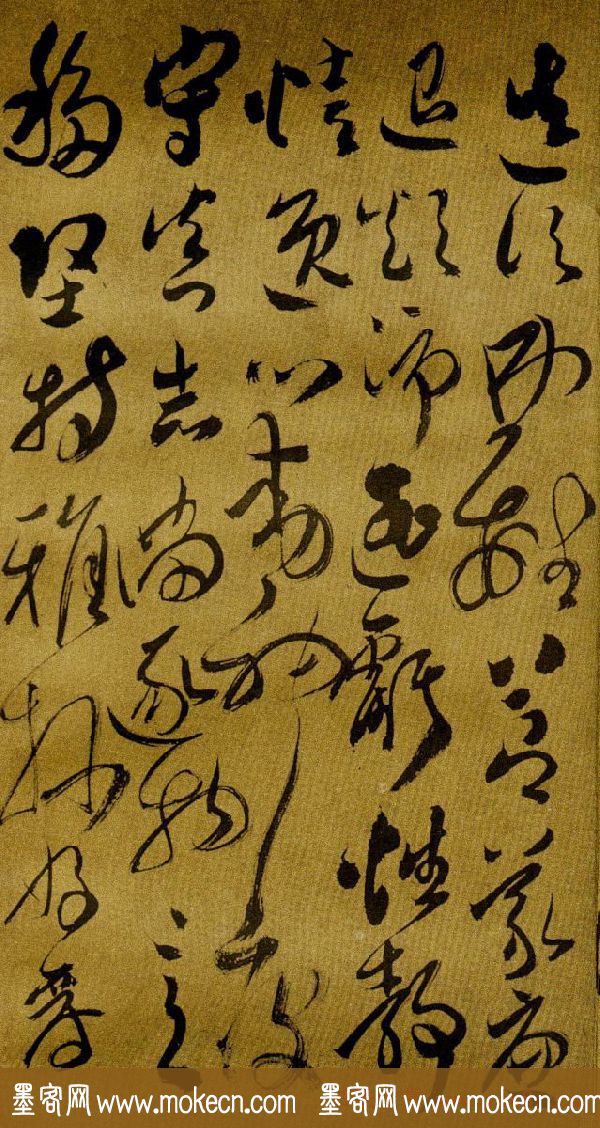 造次弗離節義廉
退顛沛匪虧性靜
情逸心動神疲
守真志滿逐物意
移堅持雅操好爵
墨客网 www.mokecn.com 墨客网 www.mokecn.com